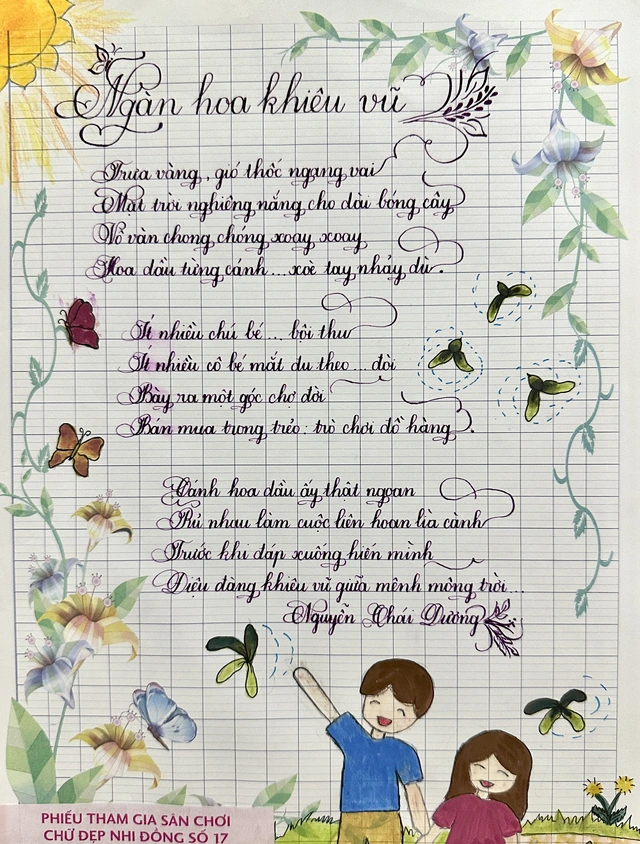 Ngàn hoa khiêu vũ
Trưa vàng, gió thốc ngang vai
Mặt trời nghiêng nắng cho dài bóng cây
Vỗ vàn chong chóng xoay xoay
Hoa dầu từng cánh... xoè tay nhảy dù.
Ít nhiều chú bé... bội thu
Ít nhiều cô bé mắt du theo... đòi
Bày ra một góc chợ đời
Bán mua trong trẻo: trò chơi đồ hàng.
Cánh hoa dầu ấy thật ngoan
Rủ nhau làm cuộc liên hoan lìa cành
Trước khi đáp xuống hiến mình
Diệu dàng khiêu vũ giữa mênh mông trời...
Nguyễn Thái Dương
PHIẾU THAM GIA SÂN CHƠI
CHỮ ĐẸP NHI ĐỒNG SỐ 17